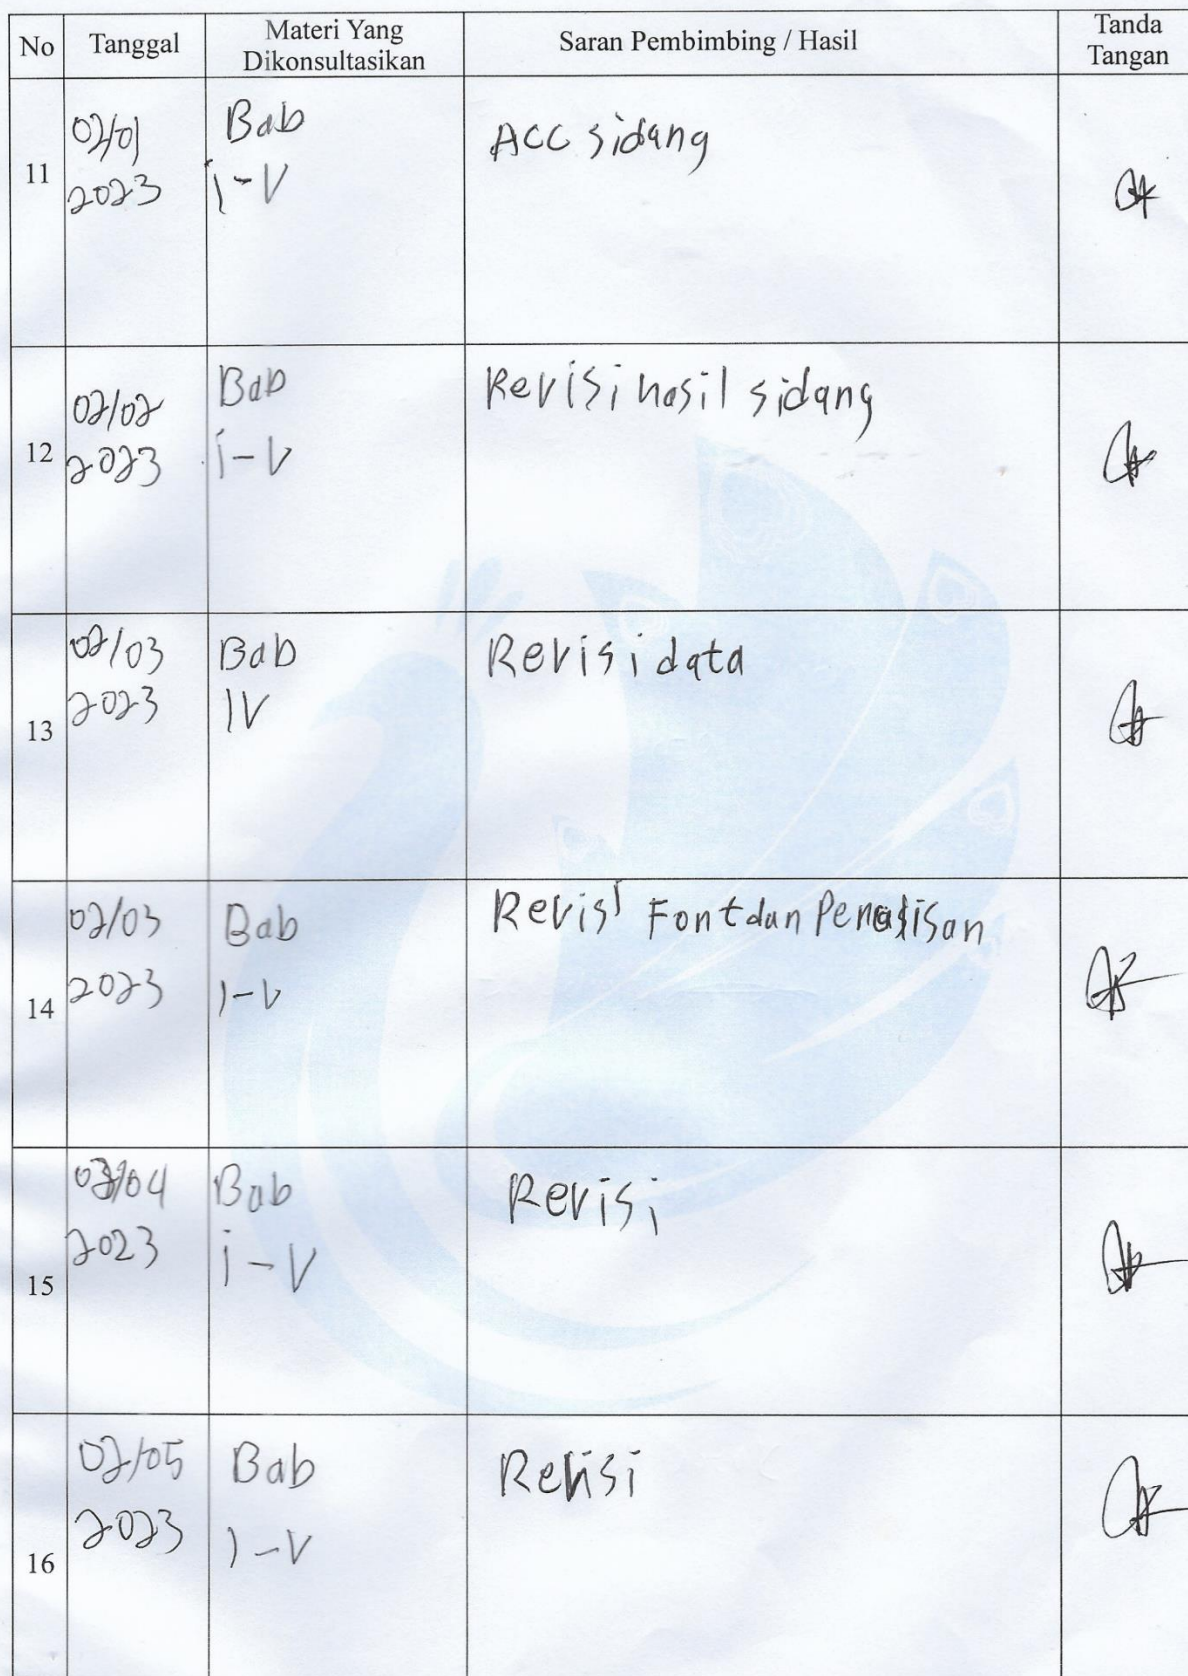 No Tanggal Materi Yang Dikonsultasikan Saran Pembimbing / Hasil Tanda Tangan
11 02/01 2023 Bab I-V ACC sidang
12 02/02 2023 Bab I-V Revisi hasil sidang
13 02/03 2023 Bab IV Revisi data
14 02/03 2023 Bab I-V Revisi Font dan
15 /04 2023 Bab I-V Revisi
16 02/05 2023 Bab I-V Revisi